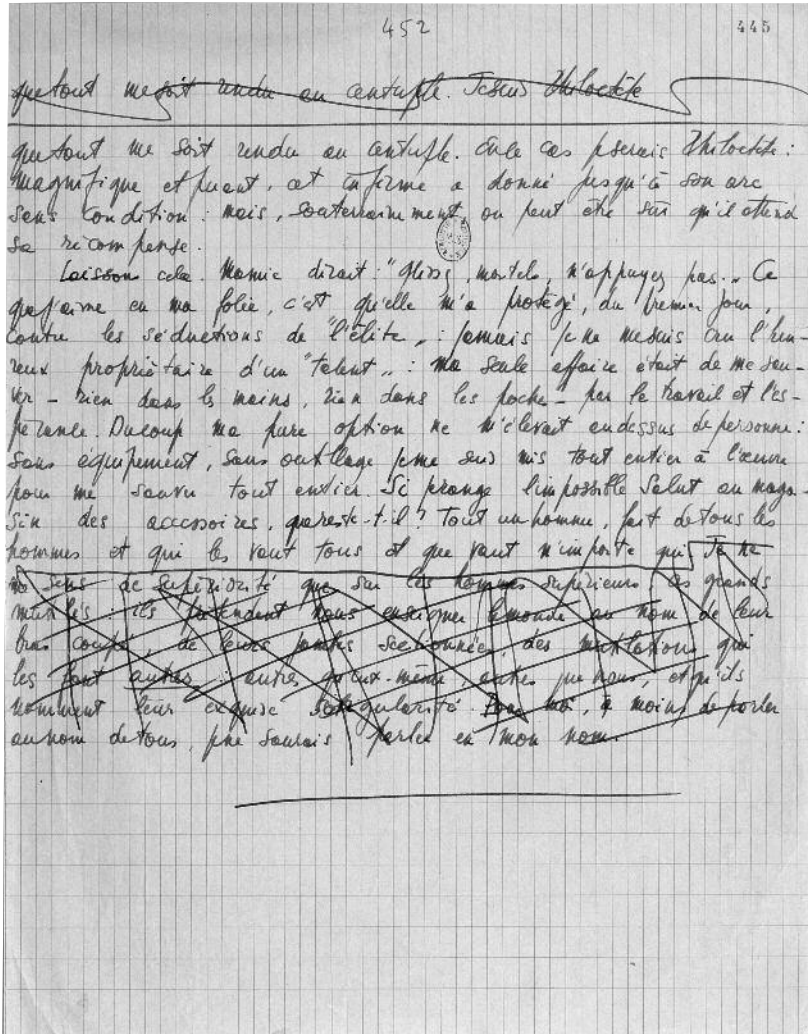 452
445
que tout me soit rendu au centuple. Je suis Philoctète
que tout me soit rendu au centuple. En ce cas je serais Philoctète :
magnifique et puant, cet infirme a donné jusqu'à son arc
sans condition : mais, souterrainement, on peut être sûr qu'il attend
sa récompense.
Laissons cela. Mamie dirait : "Glissez, mortels, n'appuyez pas". Ce
que j'aime en ma folie, c'est qu'elle m'a protégé, du premier jour,
contre les séductions de "l'élite" : jamais je ne me suis cru l'heu-
reux propriétaire d'un "talent" : ma seule affaire était de me sau-
ver – rien dans les mains, rien dans les poches – par le travail et l'es-
pérance. Du coup ma pure option ne m'élevait au dessus de personne :
sans équipement, sans outillage je me suis mis tout entier à l'œuvre
pour me sauver tout entier. Si je range l'impossible Salut au maga-
sin des accessoires, que reste-t-il? Tout un homme, fait de tous les
hommes et qui les vaut tous et que vaut n'importe qui. Je ne
me sens de supériorité que sur les hommes supérieurs, ces grands
mutilés : ils prétendent nous enseigner le monde au nom de leur
bras coupé, de leurs jambes sectionnées, des mutilations qui
les font autres : autres qu'eux-même, autres que nous, et qu'ils
nomment leur exquise singularité. Pour moi, à moins de parler
au nom de tous, je ne saurais parler en mon nom.